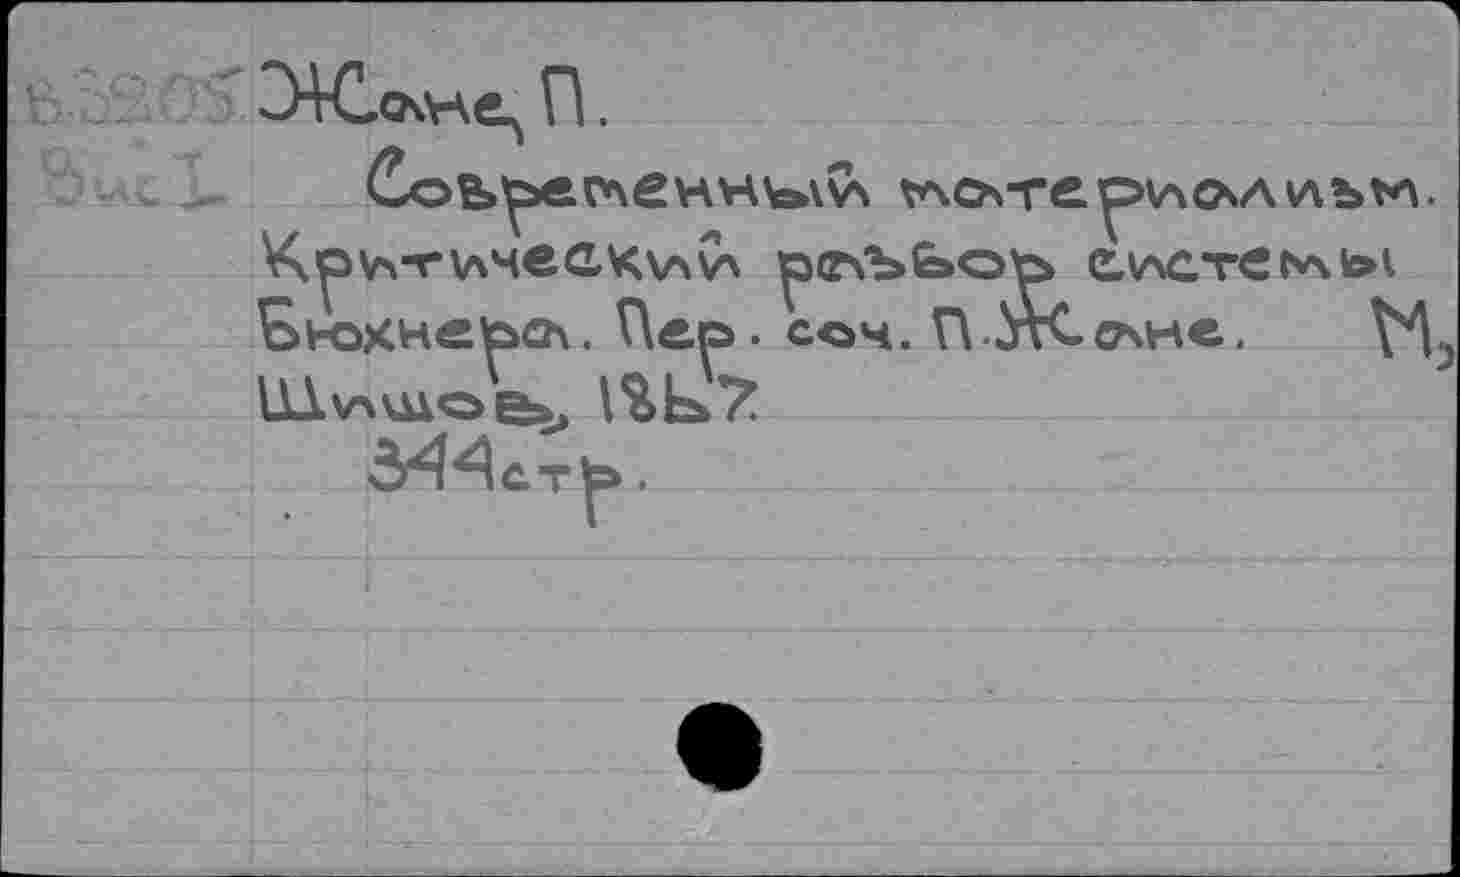 Жане, П.
Современный материализм.
Критический разбор системы
Бюхнера. Пер. соч. П. Жане. М.,
Шишов, 1867.
344 стр.